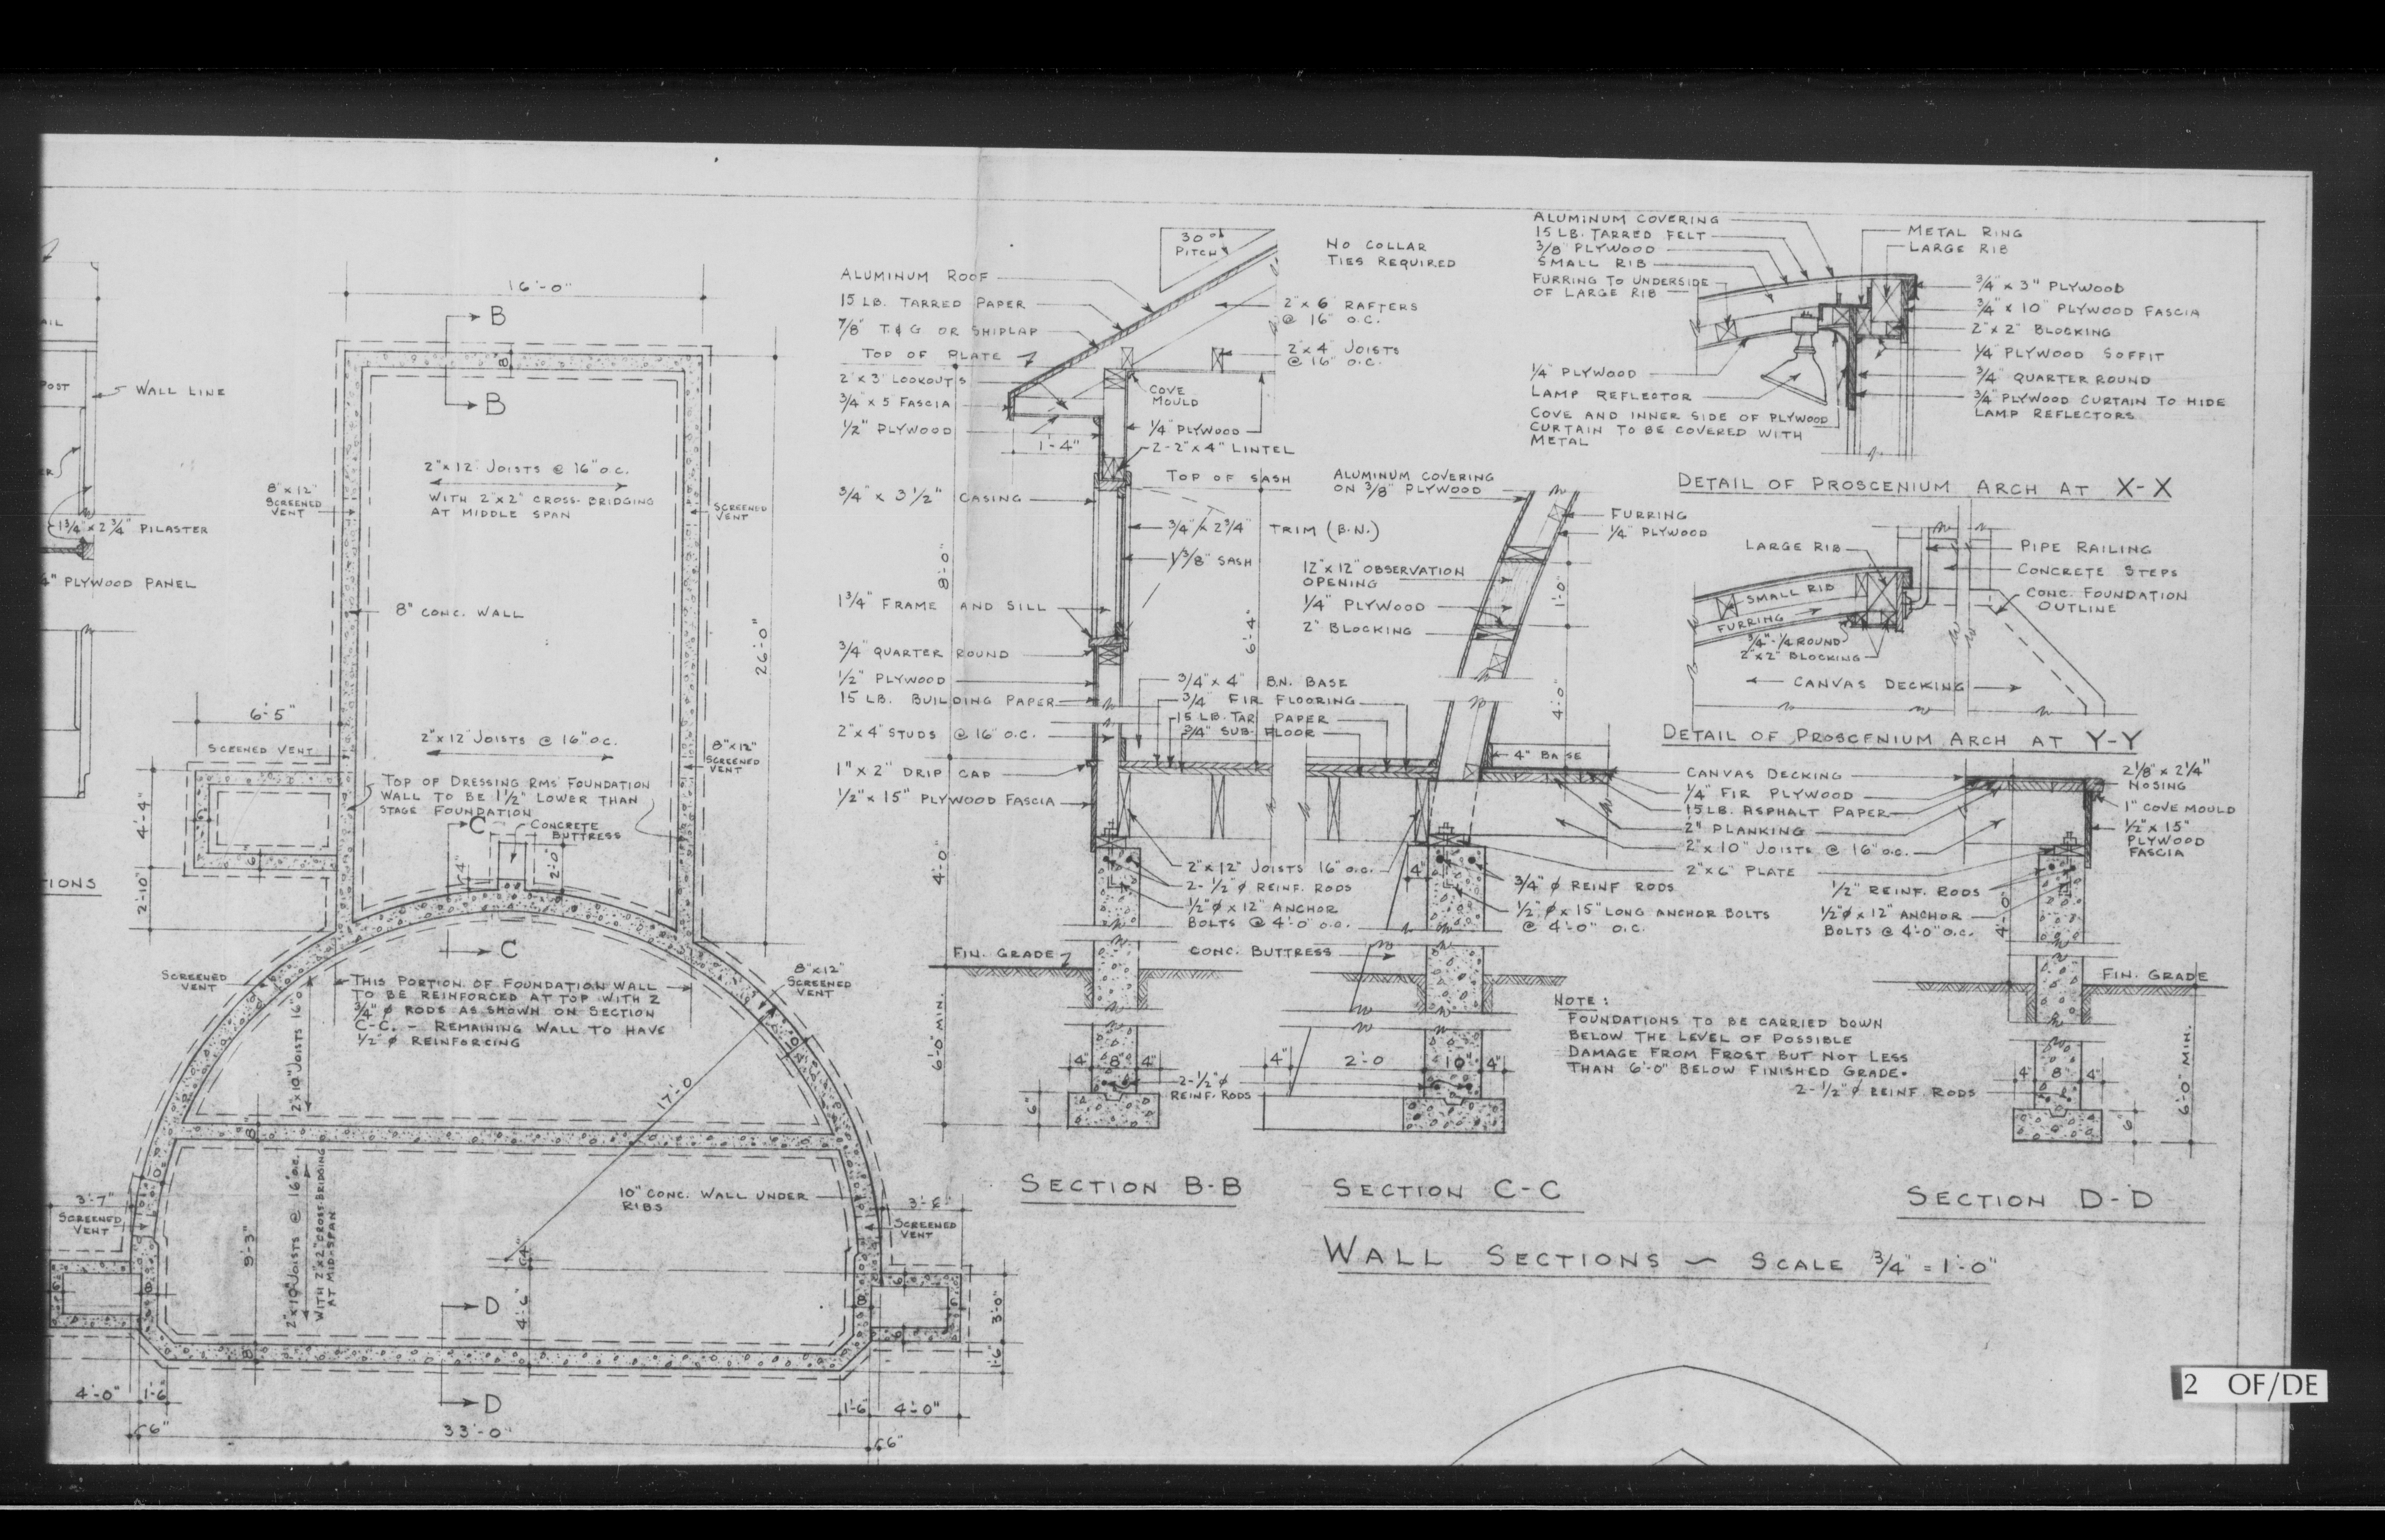 16'-0"
B
B
8"
WALL LINE
POST
1 3/4" x 2 3/4" PILASTER
4" PLYWOOD PANEL
IONS
8" x 12"
SCREENED
VENT
2" x 12" JOISTS @ 16" O.C.
WITH 2" x 2" CROSS-BRIDGING
AT MIDDLE SPAN
SCREENED
VENT
8" CONC. WALL
26'-0"
6'-5"
SCEENED VENT
4'-4"
2'-10"
6"
2" x 12" JOISTS @ 16" O.C.
8" x 12"
SCREENED
VENT
TOP OF DRESSING RMS FOUNDATION
WALL TO BE 1 1/2" LOWER THAN
STAGE FOUNDATION
C
CONCRETE
BUTTRESS
2'-0"
C
SCREENED
VENT
THIS PORTION OF FOUNDATION WALL
TO BE REINFORCED AT TOP WITH 2
3/4" ø RODS AS SHOWN ON SECTION
C-C. - REMAINING WALL TO HAVE
1/2" ø REINFORCING
8" x 12"
SCREENED
VENT
10"
2" x 10" JOISTS 16" O.
17'-0
8"
2" x 10" JOISTS @ 16" O.C.
WITH 2" x 2" CROSS-BRIDGING
AT MID-SPAN
9'-3"
10" CONC. WALL UNDER
RIBS
3'-7"
SCREENED
VENT
SCREENED
VENT
4'-6"
D
8"
3'-0"
1'-6"
D
4'-0"
1'-6
1'-6
4'-0"
6"
33'-0"
6"
30°
PITCH
NO COLLAR
TIES REQUIRED
ALUMINUM ROOF
15 LB. TARRED PAPER
7/8" T & G OR SHIPLAP
TOP OF PLATE
2" x 3" LOOKOUTS
3/4" x 5 FASCIA
1/2" PLYWOOD
2" x 6" RAFTERS
@ 16" O.C.
2" x 4" JOISTS
@ 16" O.C.
COVE
MOULD
1/4" PLYWOOD
1'-4"
2-2" x 4" LINTEL
TOP OF SASH
3/4" x 3 1/2" CASING
3/4" x 2 3/4" TRIM (B.N.)
1 3/8" SASH
8'-0"
1 3/4" FRAME AND SILL
6'-4"
3/4" QUARTER ROUND
1/2" PLYWOOD
15 LB. BUILDING PAPER
2" x 4" STUDS @ 16" O.C.
1" x 2" DRIP CAP
1/2" x 15" PLYWOOD FASCIA
3/4" x 4" B.N. BASE
3/4" FIR FLOORING
15 LB. TAR PAPER
3/4" SUB-FLOOR
4'-0"
2" x 12" JOISTS 16" O.C.
2- 1/2" ø REINF. RODS
1/2" ø x 12" ANCHOR
BOLTS @ 4'-0" O.C.
FIN. GRADE
CONC. BUTTRESS
6'-0" MIN.
4" 8" 4"
2-1/2" ø
REINF. RODS
6"
SECTION B-B
ALUMINUM COVERING
ON 3/8" PLYWOOD
FURRING
1/4" PLYWOOD
12" x 12" OBSERVATION
OPENING
1/4" PLYWOOD
2" BLOCKING
1'-0"
4'-0"
4" BASE
4"
3/4" ø REINF RODS
1/2" ø x 15" LONG ANCHOR BOLTS
@ 4'-0" O.C.
4" 2'-0 10" 4"
SECTION C-C
NOTE:
FOUNDATIONS TO BE CARRIED DOWN
BELOW THE LEVEL OF POSSIBLE
DAMAGE FROM FROST BUT NOT LESS
THAN 6'-0" BELOW FINISHED GRADE.
ALUMINUM COVERING
15 LB. TARRED FELT
3/8" PLYWOOD
SMALL RIB
FURRING TO UNDERSIDE
OF LARGE RIB
METAL RING
LARGE RIB
3/4" x 3" PLYWOOD
3/4" x 10" PLYWOOD FASCIA
2" x 2" BLOCKING
1/4" PLYWOOD SOFFIT
3/4" QUARTER ROUND
3/4" PLYWOOD CURTAIN TO HIDE
LAMP REFLECTORS
1/4" PLYWOOD
LAMP REFLECTOR
COVE AND INNER SIDE OF PLYWOOD
CURTAIN TO BE COVERED WITH
METAL
DETAIL OF PROSCENIUM ARCH AT X-X
LARGE RIB
PIPE RAILING
CONCRETE STEPS
CONC. FOUNDATION
OUTLINE
SMALL RIB
FURRING
3/4"-1/4 ROUND
2" x 2" BLOCKING
CANVAS DECKING
DETAIL OF PROSCENIUM ARCH AT Y-Y
CANVAS DECKING
1/4" FIR PLYWOOD
15 LB. ASPHALT PAPER
2" PLANKING
2" x 10" JOISTS @ 16" O.C.
2" x 6" PLATE
2 1/8" x 2 1/4"
NOSING
1" COVE MOULD
1/2" x 15"
PLYWOOD
FASCIA
1/2" REINF. RODS
1/2" ø x 12" ANCHOR
BOLTS @ 4'-0" O.C.
4'-0"
FIN. GRADE
2-1/2" ø REINF. RODS
4" 8" 4"
6"
6'-0" MIN.
SECTION D-D
WALL SECTIONS ~ SCALE 3/4" = 1'-0"
2 OF/DE